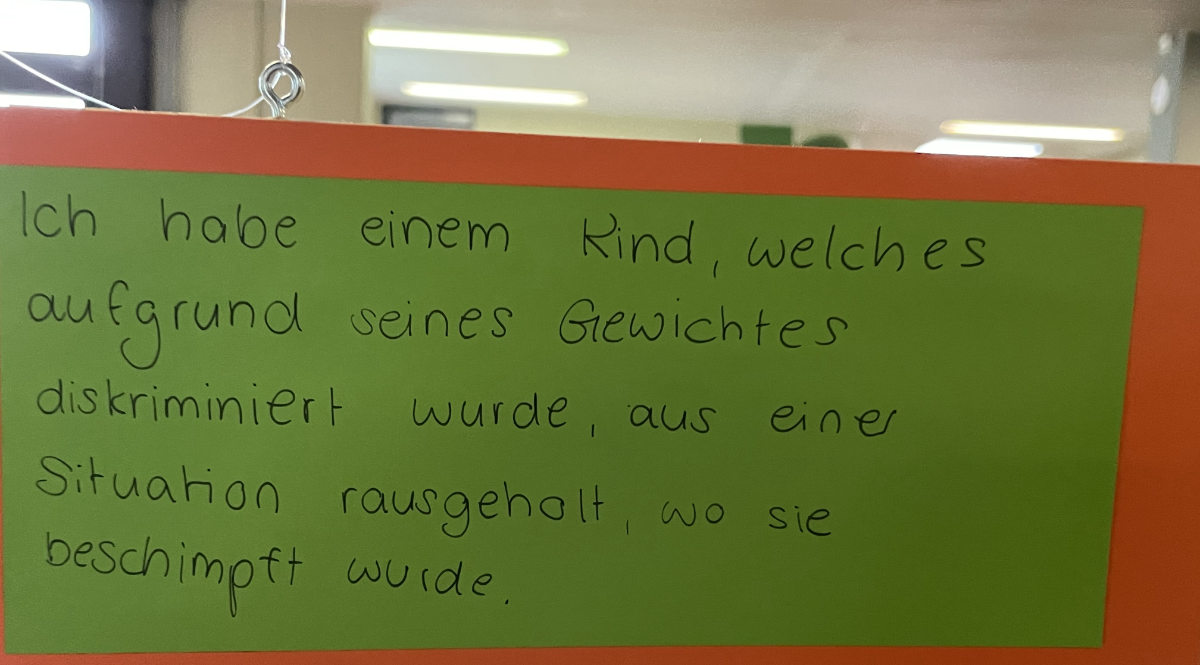 Ich habe einem Kind, welches
aufgrund seines Gewichtes
diskriminiert wurde, aus einer
Situation rausgeholt, wo sie
beschimpft wurde.